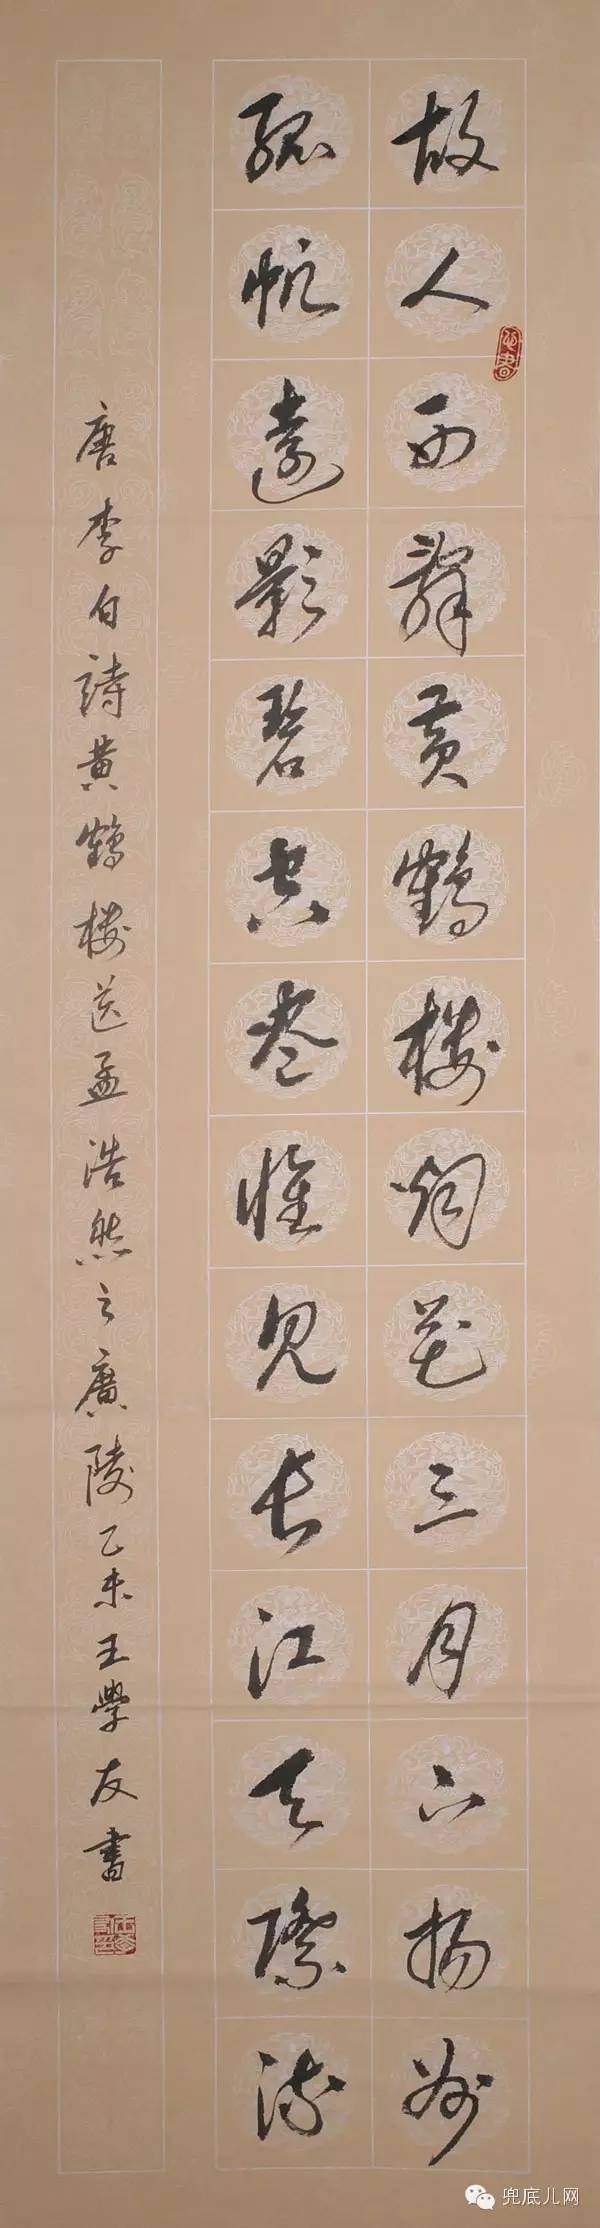 故人西辭黃鶴樓烟花三月下揚州
孤帆遠影碧空盡惟見長江天際流
唐李白詩黃鶴樓送孟浩然之廣陵乙未王學友書
兜底儿网